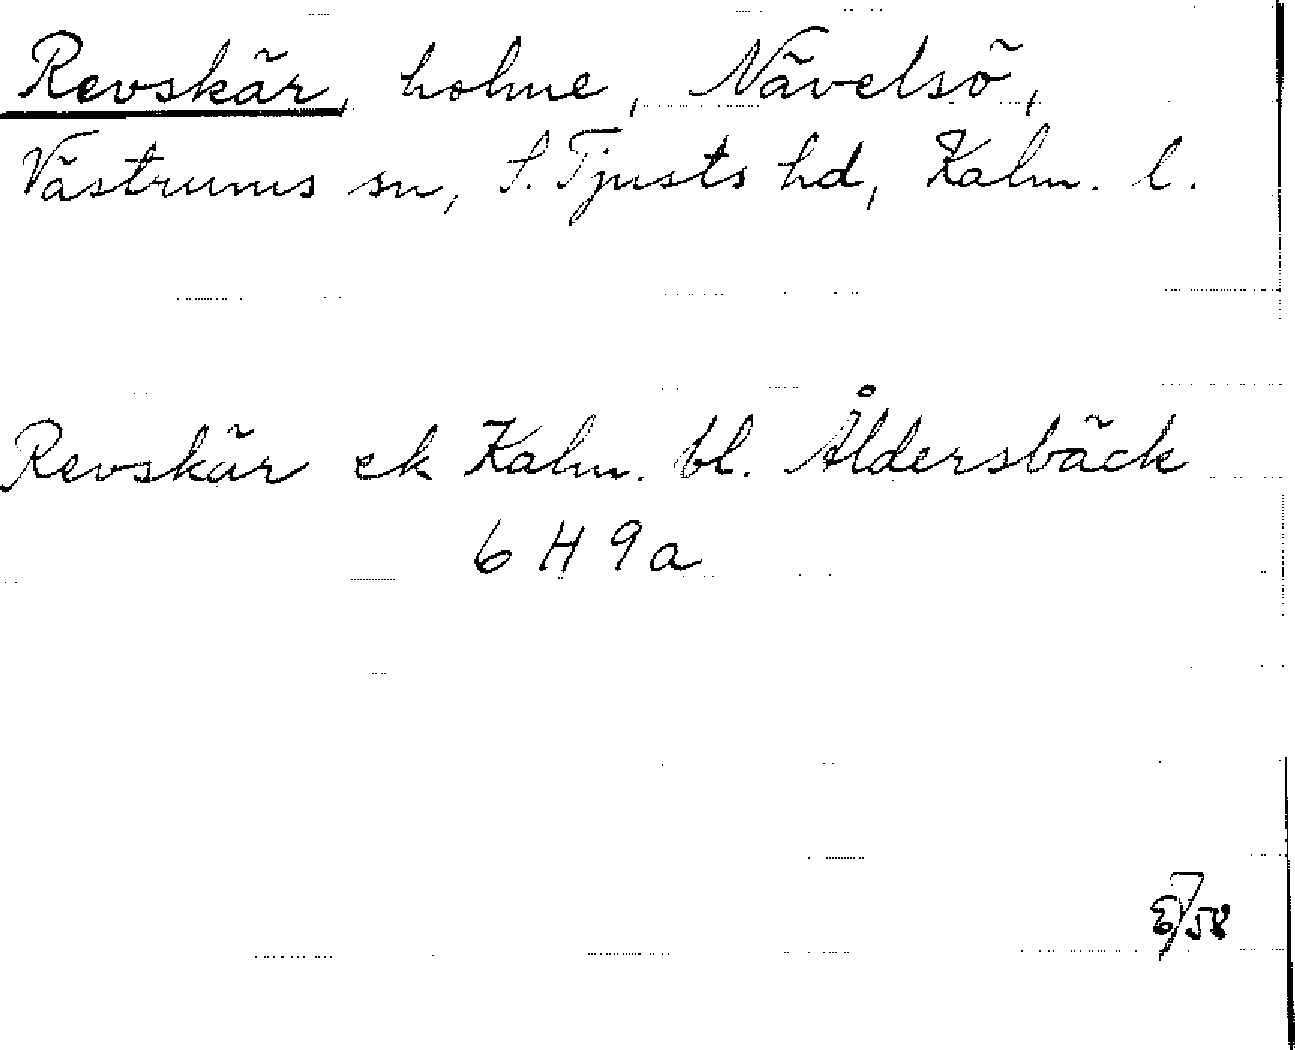 Revskär, holme, Nävelsö,
Västrums sn, S. Tjusts hd, Kalm. l.
Revskär ek Kalm. bl. Åldersbäck
6 H 9a